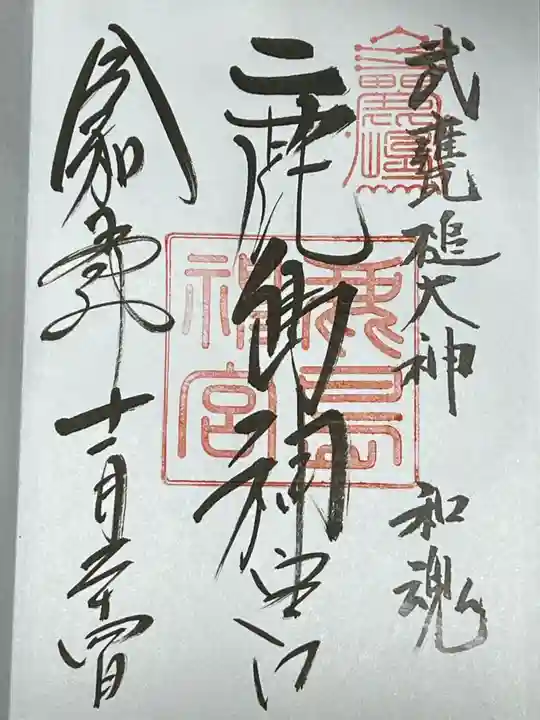 武甕槌大神 和魂
鹿島神宮
鹿島神宮
令和
十二月二十四日